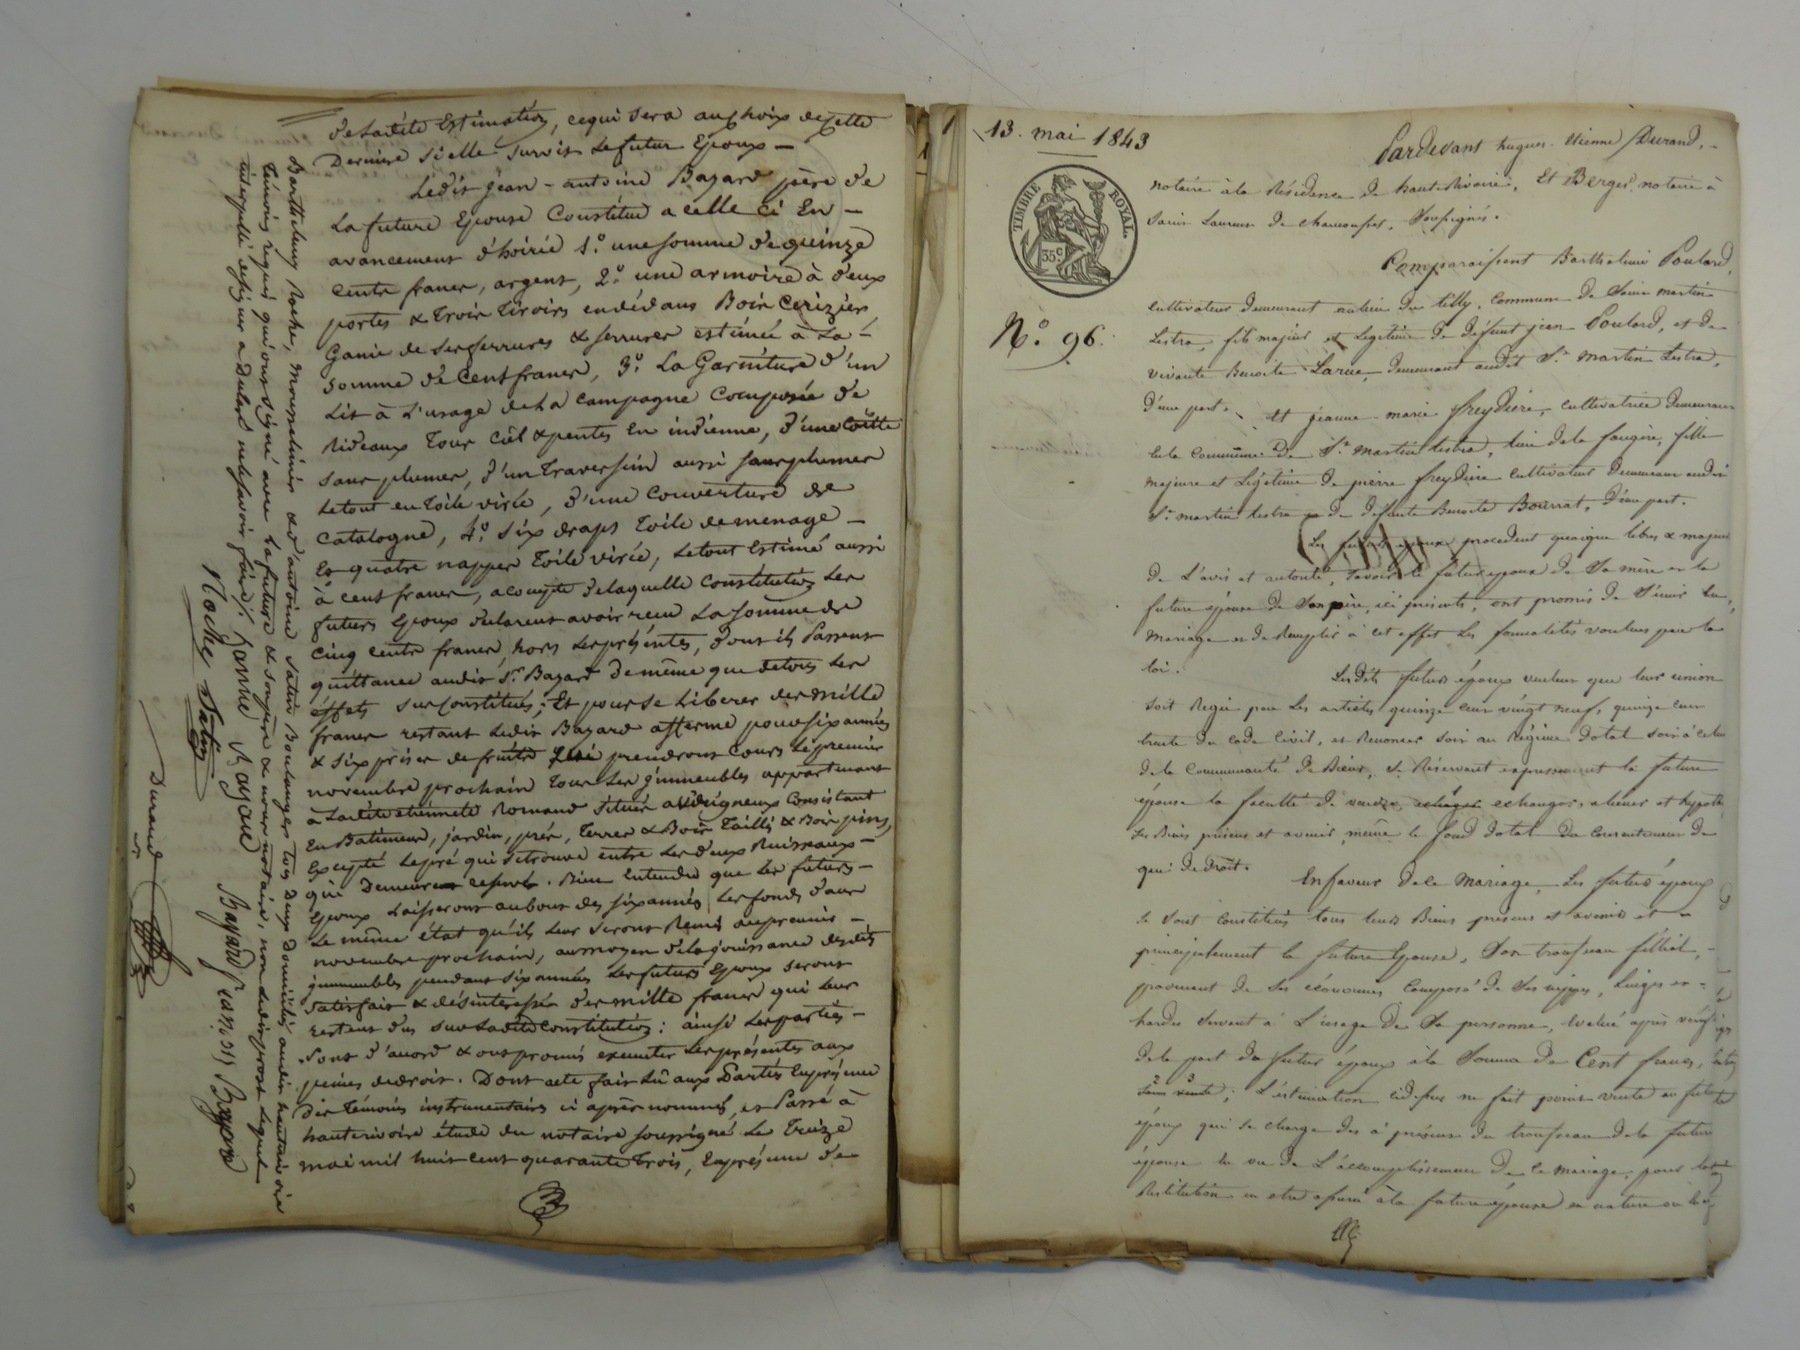 de ladite Estimation, cequi sera auchoix decette
Derniere sielle survit lefutur Epoux —
Ledit jean-antoine Bazard père de
La future Epouse Constitue a celle ci En —
avancement d'hoirie 1.º unesomme dequinze
cents francs, argent, 2.º une armoire à deux
portes & trois tiroirs endédans Bois Cerizier,
Garnie de sesferrures & serrures estimée à La —
somme de Centfrancs, 3.º La Garniture d'un
Lit à L'usage dela campagne Composée de
Rideaux tour Ciel &pentes En indienne, d'une Coëtte
sans plumes, d'un traversin aussi sansplumes
Letout entoile virée, d'une couverture de
Catalogne, 4.º six draps toile demenage —
Et quatre nappes toile virée, Letout Estimé aussi
à cent francs, acompte delaquelle Constitution Les
futurs Epoux déclarent avoir recu La somme de
Cinq cents francs, hors Lesprésentes, dont ils Passent
quittance audit S.r Bazard demême que detous Les
éffets susconstitués; Et pourse Liberer des mille
francs restant Ledit Bazard afferme poursixannées
& six prises defruits qui prendront cours Lepremier
novembre prochain tous Les jmmeubles appartenant
à Ladite étiennete Romand situés Consistant
En Batiments, jardin, prés, terres & Bois taillis & Bois pins,
Excepté Lepré qui setrouve entre Les deux Ruisseaux —
qui Demeure . Bien Entendu que Les futurs —
Epoux Laisseront aubout des sixannées Les fonds dans
Le même état qu'ils Leur seront Remis aupremier —
novembre prochain, aumoyen delajouissance desdits
jmmeubles pendant sixannées Lesfuturs Epoux seront
satisfaits & désintéressés desmille francs qui Leur
restent dus sur Laditeconstitution: ainsi Lesparties —
sont d'acord & ontpromis exécuter Lesprésentes aux
peines dedroit. Dont acte fait Lû aux Parties Enprésence
Des témoins instrumentaires ci après nommés, et Passé à
hauterivoire étude du notaire soussigné Le Treize
mai mil huit cent quarante trois, Enprésence de
Barthelemy Roche, Mousselinier & d'antoine Satin Boulanger tous deux domiciliés audit hauterivoire
témoins requis quiont signé avec Lafuture & sonpère & nous notaire, non Ledit lequel
interpellé designer a Déclaré nelesavoir faire./.
Roche Satin
Bazard françois Bazard
Durand
13. mai 1843
TIMBRE ROYAL.
35c
N.º 96.
Pardevant hugues-Etienne Durand, —
notaire à la Résidence de hauteRivoire, Et Berger, notaire à
Saint Laurent de chamousset, soussignés.
Comparaissent Barthelemi Poulard,
cultivateur demeurant aulieu du tilly, Commune de Saint martin
Lestra, fils majeur et Legitime de défunt jean Poulard, et de
vivante Benoite Larue, demeurant audit S.t martin Lestra,
d'une part. Et jeanne-marie freydiere, cultivatrice demeurant
enla Commune De S.t martin lestra, lieu dela fougère, fille
majeure et Légitime de pierre freydiere cultivateur demeurant audit
S.t martin lestra & de defunte Benoite Bournat, D'autre part.
Les futurs époux procedent quoique libres & majeurs
de L'avis et autorité, savoir le futur époux de Sa mère et la
future épouse de Son père, ici présents, ont promis de S'unir en
Mariage et de Remplir à cet effet Les formalités voulues par la
loi. Lesdits futurs époux veulent que leur union
soit Régie par Les articles quinze cent vingt neuf, quinze cent
trente du code Civil, et Renoncer soit au Régime Dotal soit à celui
dela Communauté de Biens, Se Réservant expressement la future
épouse la faculté de vendre, échanger, aliener et hypoth.
Ses Biens présens et avenir, même le fond dotal Du Consentement de
qui De droit. En faveur de ce Mariage, Les futurs époux
Se sont constitués tous leurs Biens présens et avenir et —
principalement la future Epouse, Son trousseau filliat, —
provenant de Ses économies Composé de Ses nippes, Linges et —
hardes Servant à L'usage De Sa personne, évalué après vérification
dela part du futur époux à la Somme de Cent francs,
sans vente; L'estimation cidessus ne fait point vente au futur
époux qui Se charge dès à présent du trousseau dela future
épouse en vu de L'accomplissement De ce mariage, pour la
Restitution en etre assuré à la future épouse en nature ou